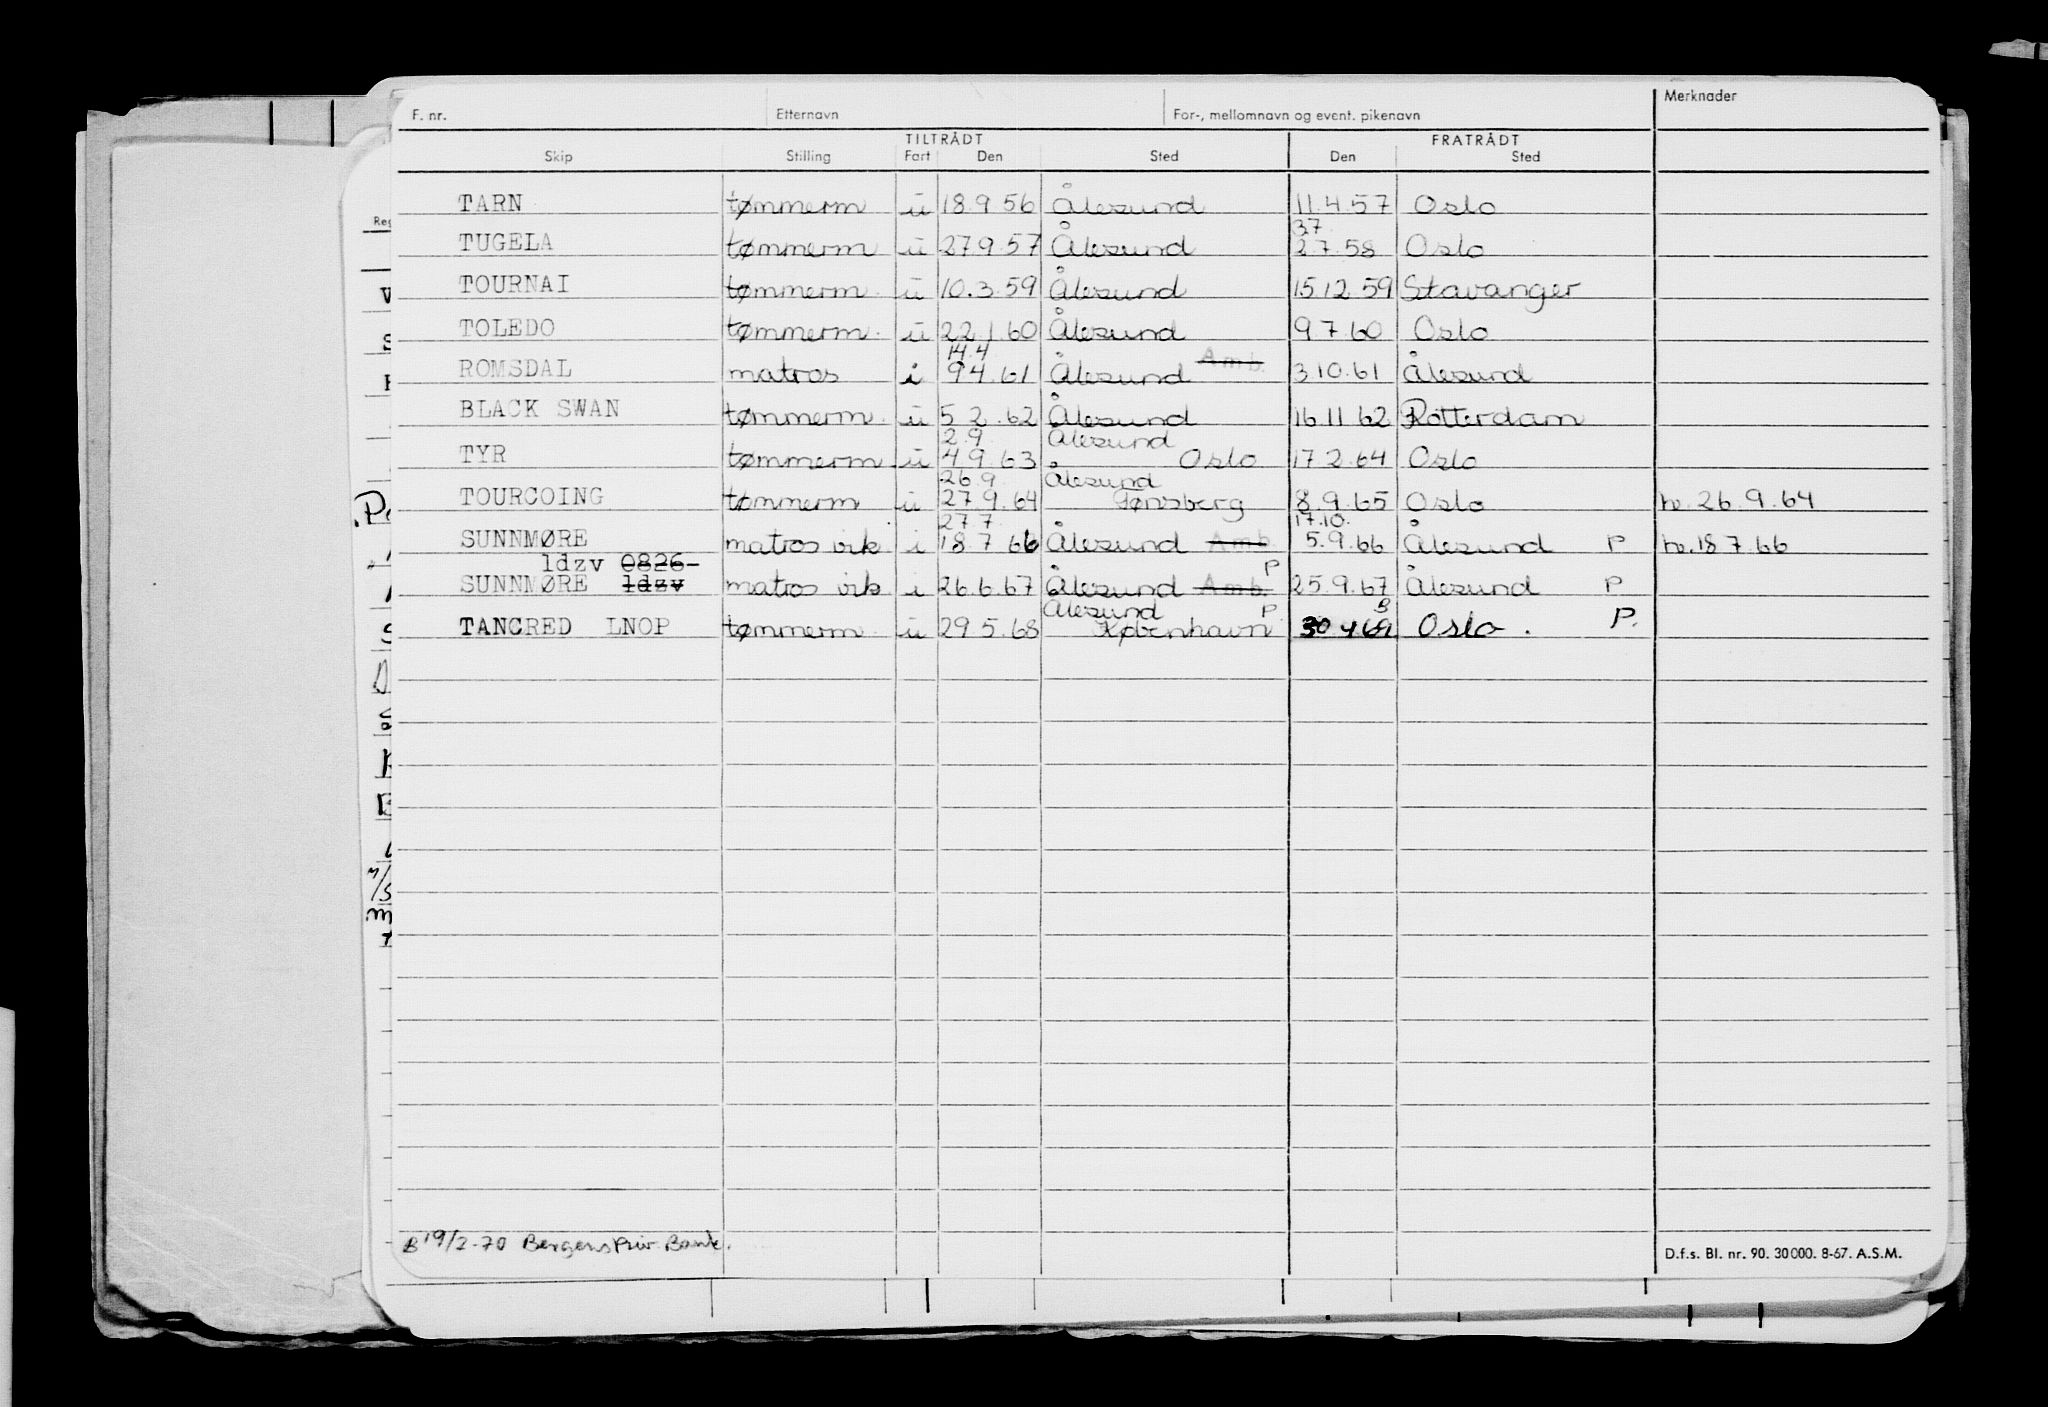 F. nr. Etternavn For-, mellomnavn og event. pikenavn Merknader
TILTRÅDT FRATRÅDT
Skip Stilling Fart Den Sted Den Sted
TARN tømmerm u 18.9.56 Ålesund 11.4.57 Oslo
3.7
TUGELA tømmerm u 27.9.57 Ålesund 2.7.58 Oslo
TOURNAI tømmerm. u 10.3.59 Ålesund 15.12.59 Stavanger
TOLEDO tømmerm. u 22.1.60 Ålesund 9.7.60 Oslo
14.4 Amb.
ROMSDAL matros i 9.4.61 Ålesund 3.10.61 Ålesund
BLACK SWAN tømmerm. u 5.2.62 Ålesund 16.11.62 Rotterdam
2.9. Ålesund
TYR tømmerm. u 4.9.63 Oslo 17.2.64 Oslo
26.9. Ålesund
TOURCOING tømmerm u 27.9.64 Tønsberg 8.9.65 Oslo h. 26.9.64
27.7. 17.10.
SUNNMØRE matros vik i 18.7.66 Ålesund Amb. 5.9.66 Ålesund P h. 18.7.66
ldzv 0826- P
SUNNMØRE ldzv matros vik i 26.6.67 Ålesund Amb. 25.9.67 Ålesund P
Ålesund P B
TANCRED LNOP tømmerm. u 29.5.68 København 30.4.69 Oslo. P.
B 19/2-70 Bergens Priv. Bank.
D.f.s. Bl. nr. 90. 30000. 8-67. A.S.M.